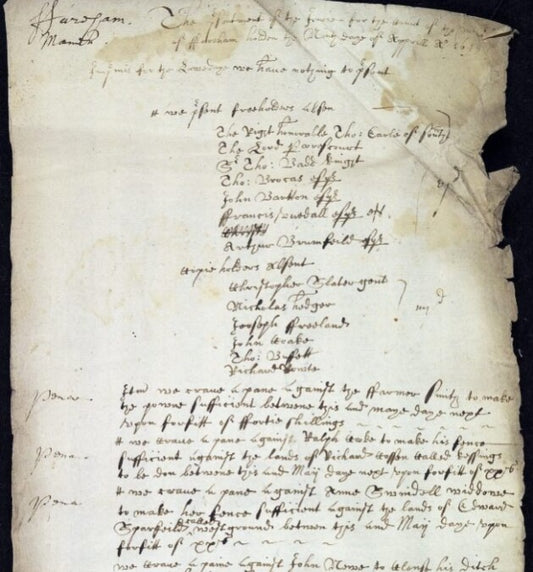 ffareham.
Manth
The psentment of the Jurie for the Court of
of ffareham holden the daye of Aprill
Inpris for the we have nothing to psent
it we psent freeholders absen
The Right honorable Tho: Earle of South
The Lord
Sr Tho: knight
Tho: Brocas esqr
John Barton esqr
ffrancis esqr
Arthur Brumfeild esqr
Copie holders absent
Christopher Slater gent
Nicholas hedger
Joseph ffreeland
John Coake
Tho:
Richard
iiij d
Pena. Itm we crave a pane against the ffarmer to make
the pownd sufficient betwene this and maye daye next
upon forfitt of ffortie shillings
Pena. it we crave a pane against Ralph Coke to make his fence
sufficient against the lands of Richard called
to be don betwene this and Maij daye next upon forfitt of xxs
Pena it we crave a pane against Anne Swindell widdowe
to make her fence sufficient against the lands of Edward
called westgrounds betwen this and Maij daye upon
forfitt of xxs
we crave a pane against John Newe to clense his ditch